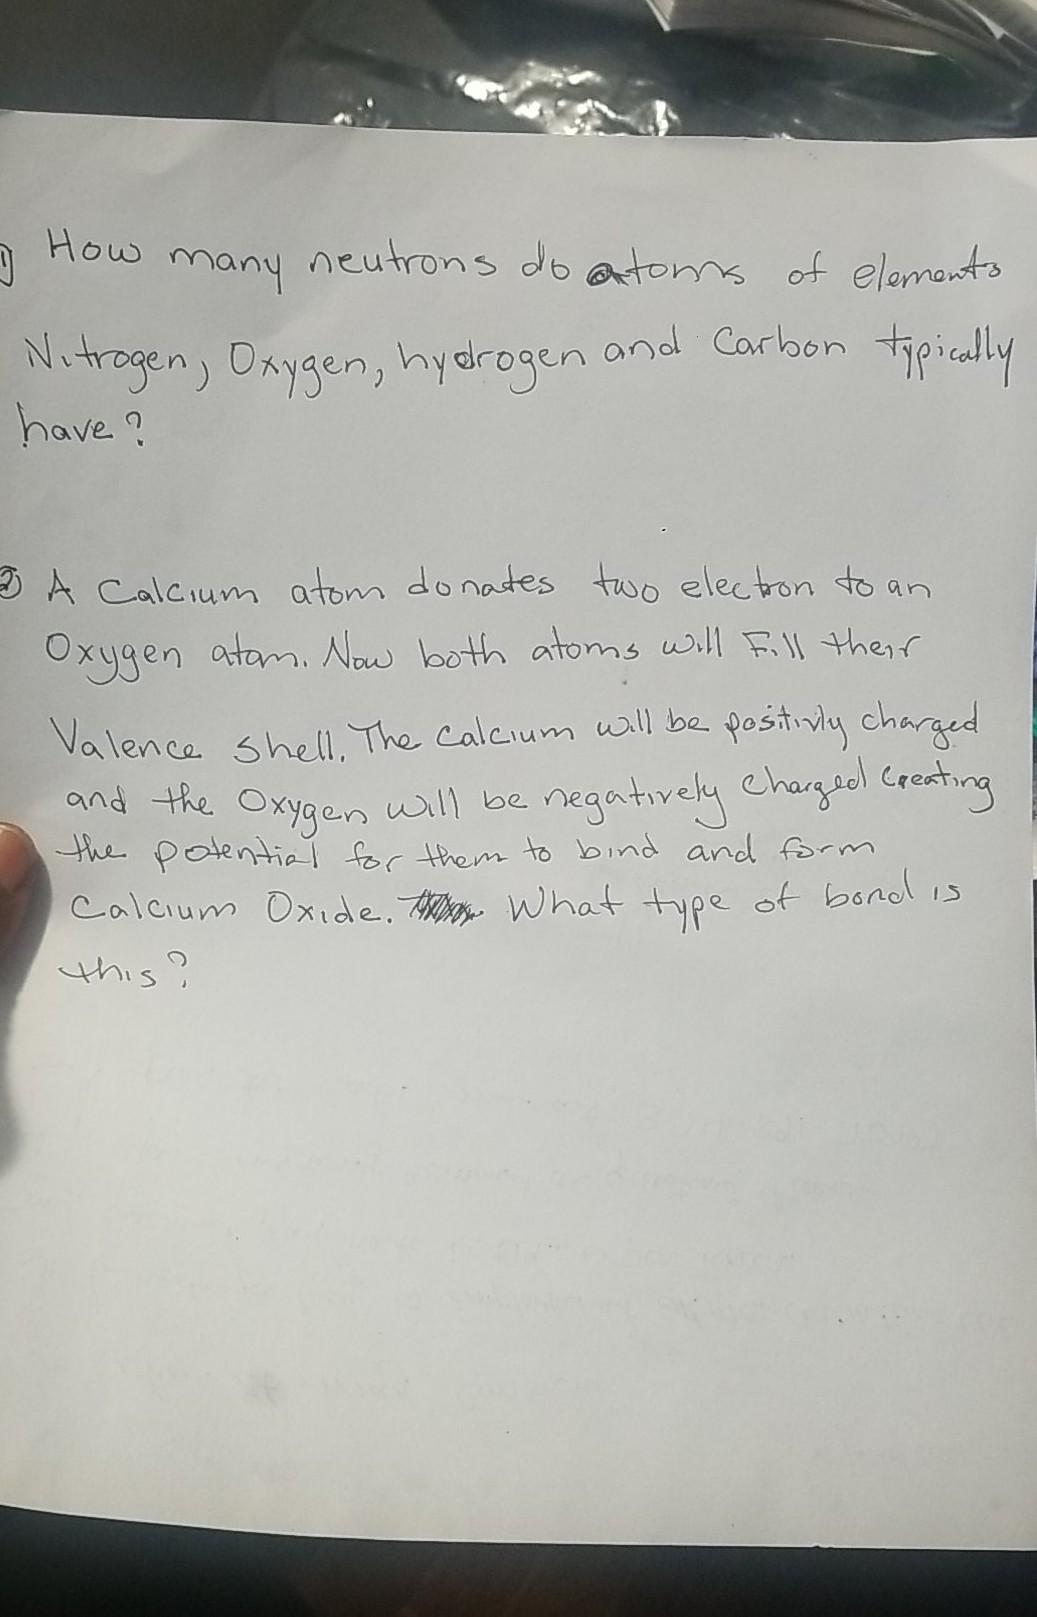 1) How many neutrons do atoms of elements
Nitrogen, Oxygen, hydrogen and Carbon typically
have?
2) A Calcium atom donates two electron to an
Oxygen atom. Now both atoms will Fill their
Valence shell. The Calcium will be positivly charged
and the Oxygen will be negatively charged Creating
the potential for them to bind and form
Calcium Oxide. What type of bond is
this?